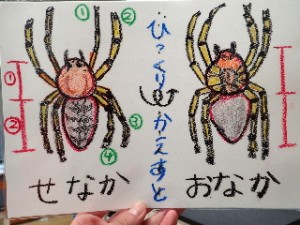 ① ②
ひっくりかえすと
①
②
③
④
せなか
おなか